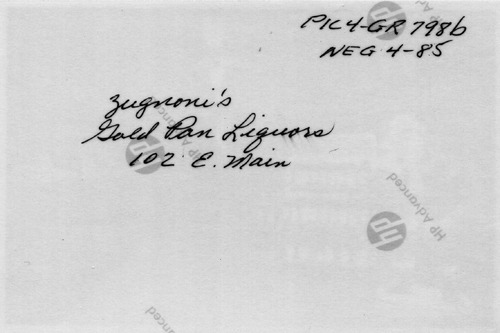 PIC4-GR 798b
NEG 4-85
zugnoni's
Gold Pan Liquors
102 E. Main
HP Advanced
hp
HP Advanced
hp
HP Advanced
hp
HP Advanced